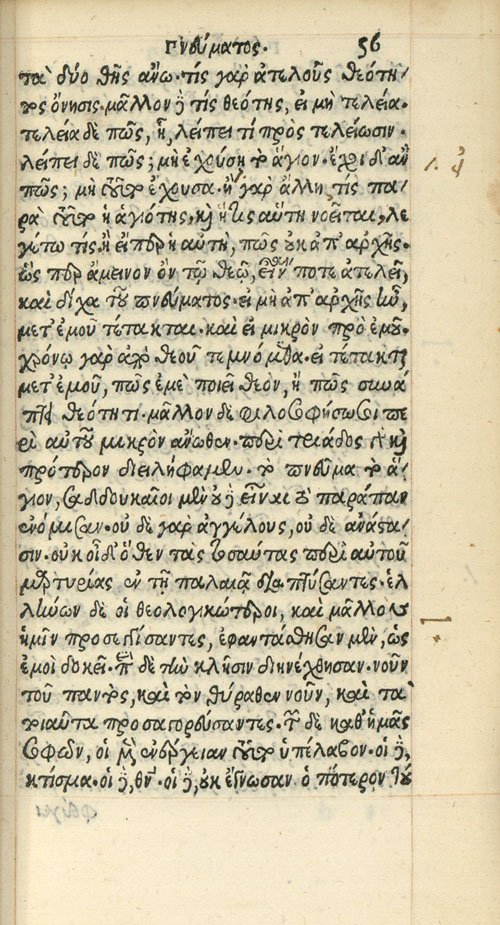 πνεύματος. 56
τὰ δύο θῇς ἄνω. τίς γὰρ ἀτελοῦς θεότη/
τος ὄνησις. μᾶλλον δὲ τίς θεότης, εἰ μὴ τελεία.
τελεία δὲ πῶς, ᾗ, λείπει τὶ πρὸς τελείωσιν.
λείπει δὲ πῶς; μὴ ἐχούσῃ τὸ ἅγιον. ἔχοι δ' ἂν
πῶς; μὴ τοῦτο ἔχουσα. ἢ γὰρ ἄλλη τις πα/
ρὰ τοῦτο ἡ ἁγιότης, καὶ ἥ τις αὕτη νοεῖται, λε
γέτω τίς. ἢ εἴπερ ἡ αὐτὴ, πῶς οὐκ ἀπ' ἀρχῆς.
ὥς περ ἄμεινον ὂν τῷ θεῷ, εἶναί ποτε ἀτελεῖ,
καὶ δίχα τοῦ πνεύματος. εἰ μὴ ἀπ' ἀρχῆς ἦν,
μετ' ἐμοῦ τέτακται. καὶ εἰ μικρὸν πρὸ ἐμοῦ.
χρόνῳ γὰρ ἀπὸ θεοῦ τεμνόμεθα. εἰ τέτακται
μετ' ἐμοῦ, πῶς ἐμὲ ποιεῖ θεὸν, ἢ πῶς συνά
πτει θεότητι. μᾶλλον δὲ φιλοσοφήσω σοι πε
ρὶ αὐτοῦ μικρὸν ἄνωθεν. περὶ τριάδος γὰρ καὶ
πρότερον διειλήφαμεν. τὸ πνεῦμα τὸ ἅ/
γιον, σαδδουκαῖοι μὲν οὐδὲ εἶναι τὸ παράπαν
ἐνόμισαν. οὐ δὲ γὰρ ἀγγέλους, οὐ δὲ ἀνάστα/
σιν. οὐκ οἶδ' ὅθεν τὰς τοσαύτας περὶ αὐτοῦ
μαρτυρίας ἐν τῇ παλαιᾷ διαπτύσαντες. ἑλ
λήνων δὲ οἱ θεολογικώτεροι, καὶ μᾶλλον
ἡμῖν προσεγγίσαντες, ἐφαντάσθησαν μὲν, ὡς
ἐμοὶ δοκεῖ. περὶ δὲ τὴν κλῆσιν διηνέχθησαν. νοῦν
τοῦ παντὸς, καὶ τὸν θύραθεν νοῦν, καὶ τὰ
τοιαῦτα προσαγορεύσαντες. τῶν δὲ καθ' ἡμᾶς
σοφῶν, οἱ μὲν ἐνέργειαν τοῦτο ὑπέλαβον. οἱ δὲ,
κτίσμα. οἱ δὲ, θν̄. οἱ δὲ, οὐκ ἔγνωσαν ὁ πότερον τού